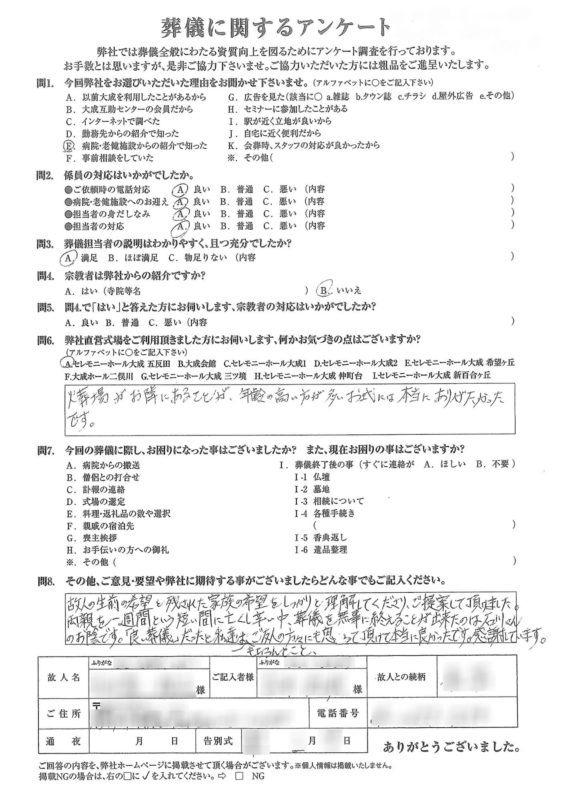 葬儀に関するアンケート
弊社では葬儀全般にわたる資質向上を図るためにアンケート調査を行っております。
お手数とは思いますが、是非ご協力下さいませ。ご協力いただいた方には粗品をご進呈いたします。
問1. 今回弊社をお選びいただいた理由をお聞かせ下さいませ。(アルファベットに○をご記入下さい)
A. 以前大成を利用したことがあるから G. 広告を見た(該当に○ a.雑誌 b.タウン誌 c.チラシ d.屋外広告 e.その他)
B. 大成互助センターの会員だから H. セミナーに参加したことがある
C. インターネットで調べた I. 駅が近く立地が良いから
D. 勤務先からの紹介で知った J. 自宅に近く便利だから
E. 病院・老健施設からの紹介で知った K. 会葬時、スタッフの対応が良かったから
F. 事前相談をしていた ※. その他( )
問2. 係員の対応はいかがでしたか。
●ご依頼時の電話対応 A. 良い B. 普通 C. 悪い (内容 )
●病院・老健施設へのお迎え A. 良い B. 普通 C. 悪い (内容 )
●担当者の身だしなみ A. 良い B. 普通 C. 悪い (内容 )
●担当者の対応 A. 良い B. 普通 C. 悪い (内容 )
問3. 葬儀担当者の説明はわかりやすく、且つ充分でしたか?
A. 満足 B. ほぼ満足 C. 物足りない (内容 )
問4. 宗教者は弊社からの紹介ですか?
A. はい (寺院等名 ) B. いいえ
問5. 問4.で「はい」と答えた方にお伺いします、宗教者の対応はいかがでしたか?
A. 良い B. 普通 C. 悪い (内容 )
問6. 弊社直営式場をご利用頂きました方にお伺いします、何かお気づきの点はございますか?
(アルファベットに○をご記入下さい)
A.セレモニーホール大成 五反田 B.大成会館 C.セレモニーホール大成1 D.セレモニーホール大成2 E.セレモニーホール大成 希望ヶ丘
F.大成ホール二俣川 G.セレモニーホール大成 三ツ境 H.セレモニーホール大成 仲町台 I.セレモニーホール大成 新百合ヶ丘
火葬場がお隣にあることが、年齢の高い方が多いお式には本当にありがたかった
です。
問7. 今回の葬儀に際し、お困りになった事はございましたか? また、現在お困りの事はございますか?
A. 病院からの搬送 I. 葬儀終了後の事 (すぐに連絡が A. ほしい B. 不要)
B. 僧侶との打合せ I-1 仏壇
C. 訃報の連絡 I-2 墓地
D. 式場の選定 I-3 相続について
E. 料理・返礼品の数や選択 I-4 各種手続き
F. 親戚の宿泊先 ( )
G. 喪主挨拶 I-5 香典返し
H. お手伝いの方への御礼 I-6 遺品整理
※. その他 ( )
問8. その他、ご意見・要望や弊社に期待する事がございましたらどんな事でもご記入ください。
故人の生前の希望と残された家族の希望をしっかりと理解してくださり、ご提案して頂けました。
両親を一週間という短い間に亡くし辛い中、葬儀を無事に終えることが出来たのは石川さん
のお陰です。「良い葬儀」だったと私達はもちろんのこと、ご友人の方々にも思って頂けて本当に良かったです。感謝しています。
故人名 ふりがな 様 ご記入者様 ふりがな 様 故人との続柄
ご住所 〒 電話番号
通夜 月 日 告別式 月 日 ありがとうございました。
ご回答の内容を、弊社ホームページに掲載させて頂く場合がございます。※個人情報は掲載いたしません。
掲載NGの場合は、右の□に✓を入れてください。⇨ □ NG